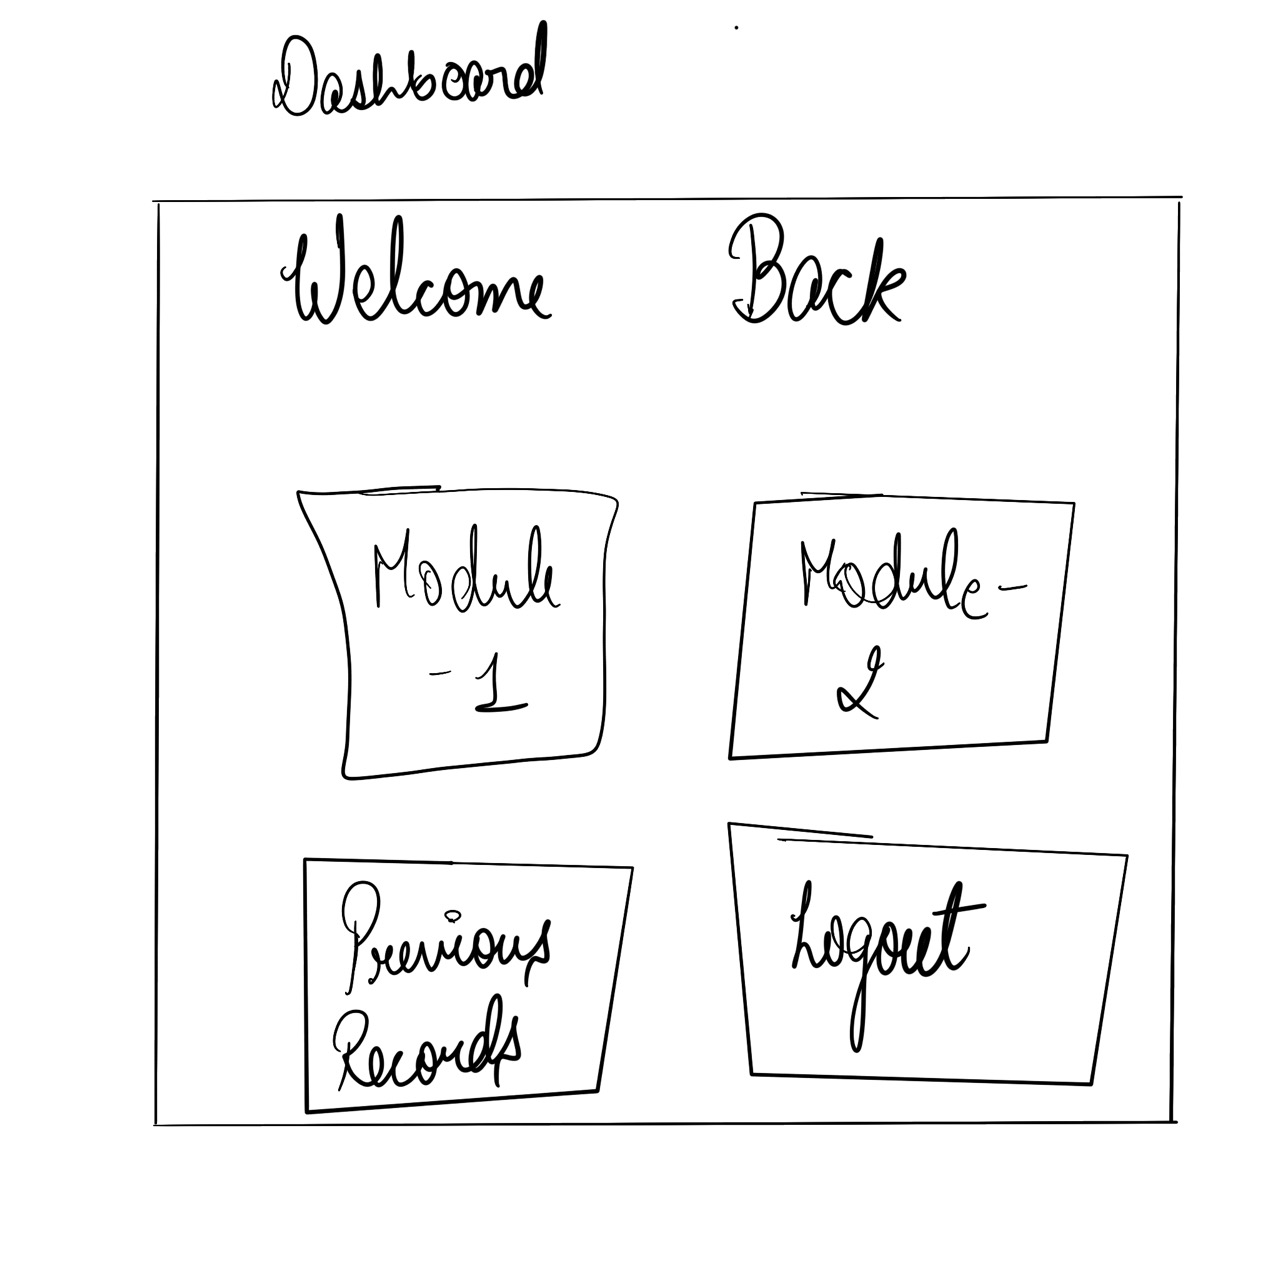 Dashboard
Welcome Back
Module
- 1
Module -
2
Previous
Records
Logout